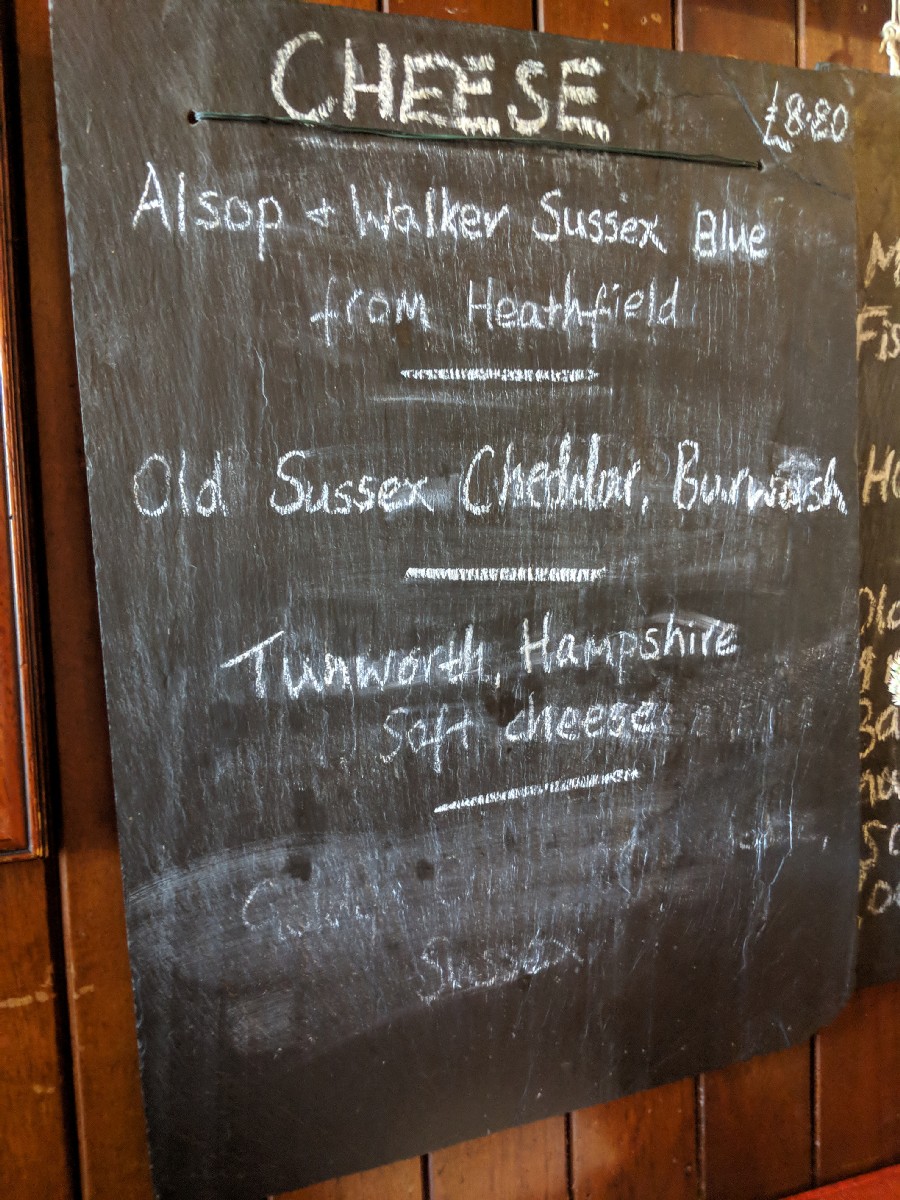 CHEESE
£8.80
Alsop + Walker Sussex Blue
from Heathfield
Old Sussex Cheddar, Burwash
Tunworth, Hampshire
soft cheese
Sussex